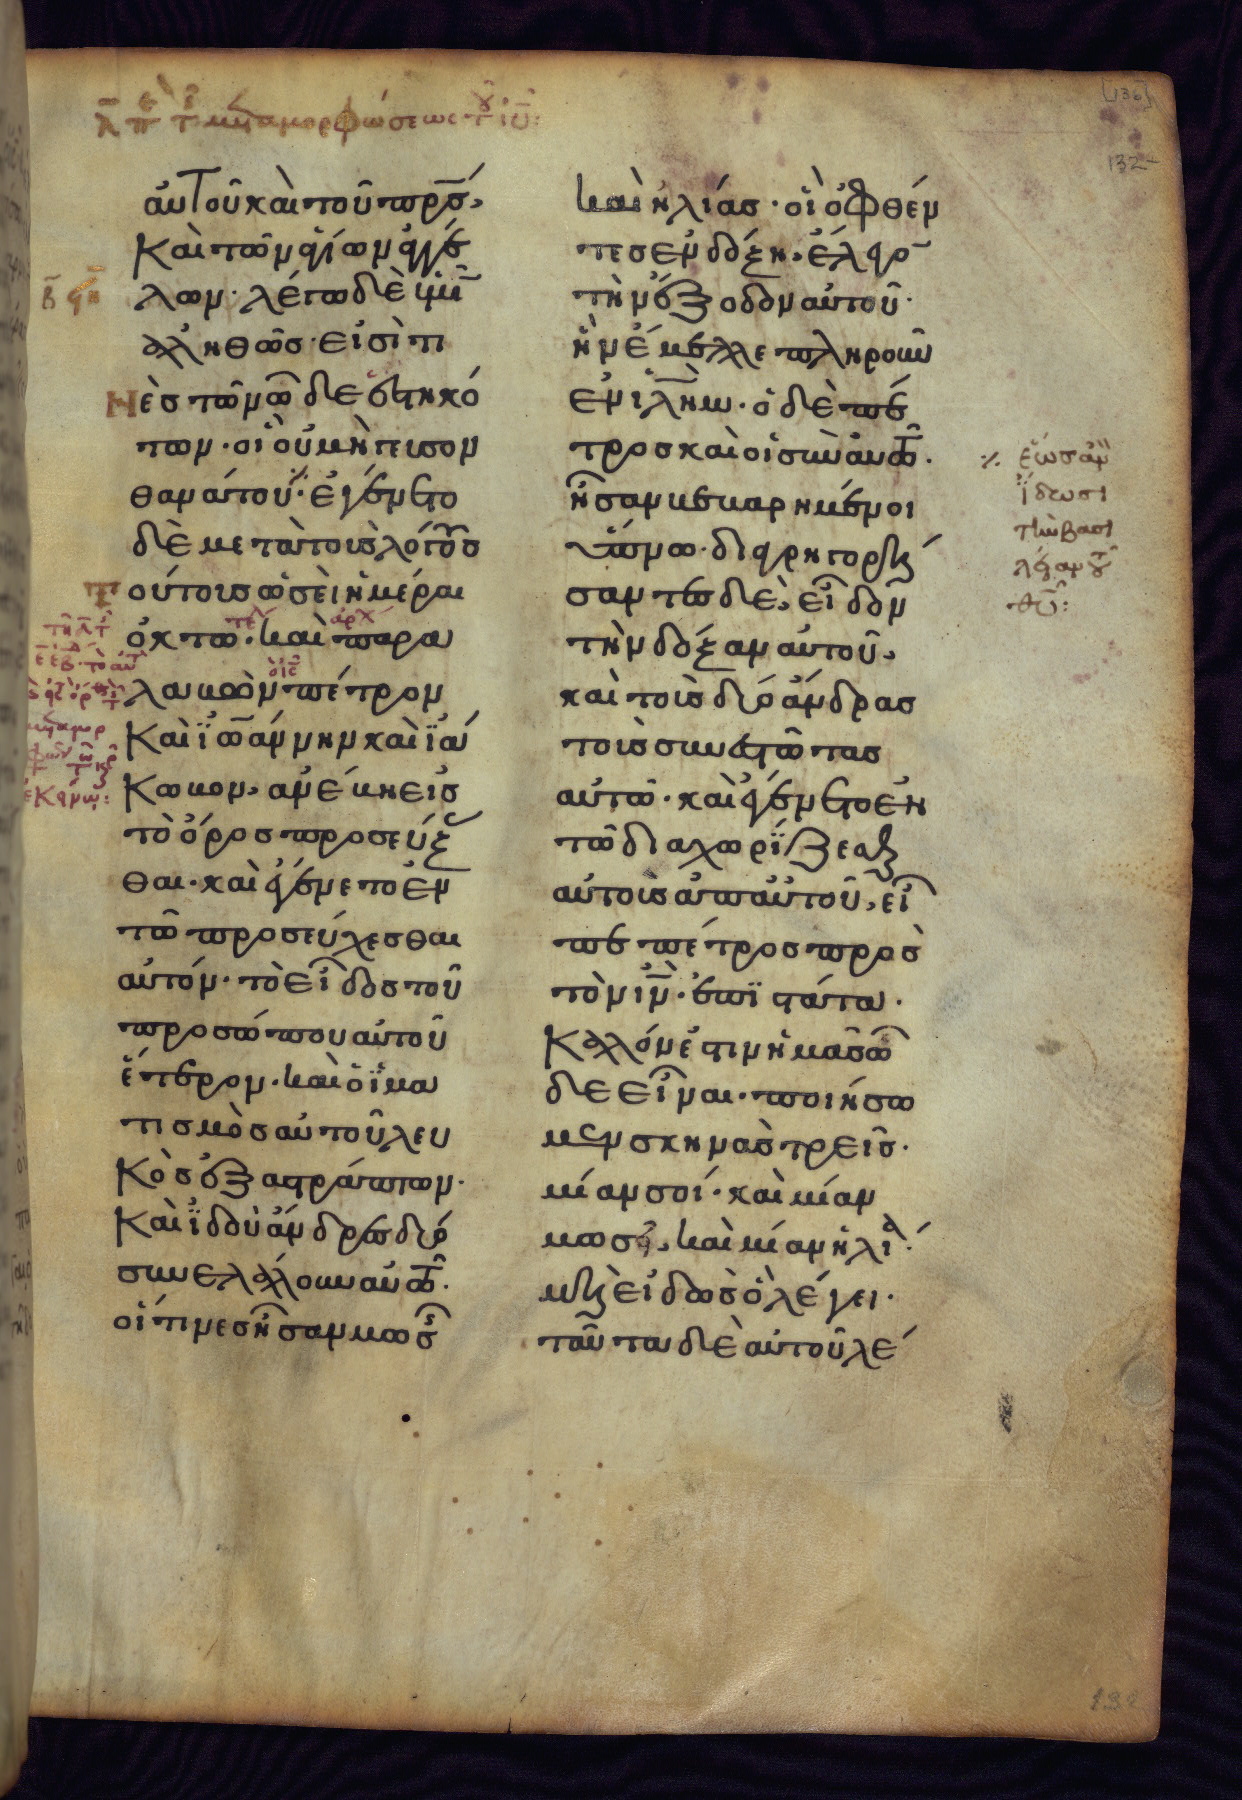 λ̅ π̅ τ̅ μεταμορφώσεως τ ιυ:
αὐτοῦ καὶ τοῦ πρσ,
καὶ τῶν ἁγίων ἀγγέ
λων· λέγω δὲ ὑμῖ
ἀληθῶς· εἰσί τι
νὲς τῶν ὧδε ἑστηκό
των· οἳ οὐ μὴ γεύσον
θανάτου· ἐγένετο
δὲ μετὰ τοὺς λόγους
τούτους ὡσεὶ ἡμέραι
ὀκτὼ· καὶ παρα
λαβὼν πέτρον
καὶ ϊωάννην καὶ ϊά
κωβον, ἀνέβη εἰς
τὸ ὄρος προσεύξ
θαι· καὶ ἐγένετο ἐν
τῶ προσεύχεσθαι
αὐτόν· τὸ εἶδος τοῦ
προσώπου αὐτοῦ
ἕτερον· καὶ ὁ ϊμα
τισμὸς αὐτοῦ λευ
κὸς ἐξαστράπτων·
καὶ ϊδοὺ ἄνδρες δύο
συνελάλουν αὐτῶ·
οἵτινες ἦσαν μωσῆ
καὶ ἠλίας· οἳ ὀφθέν
τες ἐν δόξη, ἔλεγο
τὴν ἔξοδον αὐτοῦ·
ἣν ἔμελλε πληροῦν
ἐν ιλῆμ· ὁ δὲ πέ
τρος καὶ οἱ σὺν αὐτῶ·
ἦσαν βεβαρημένοι
ὕπνω· διαγρηγορή
σαντες δὲ, εἶδον
τὴν δόξαν αὐτοῦ,
καὶ τοὺς δύο ἄνδρας
τοὺς συνεστῶτας
αὐτῶ· καὶ ἐγένετο ἐν
τῶ διαχωρίζεσθαι
αὐτοὺς ἀπ αὐτοῦ, εἶ
πε πέτρος πρὸς
τὸν ιν· ἐπιστάτα·
καλόν ἐστιν ἡμᾶς ὧ
δε εἶναι· ποιήσω
μεν σκηνὰς τρεῖς·
μίαν σοί· καὶ μίαν
μωσῆ, καὶ μίαν ἠλία·
μὴ εἰδὼς ὃ λέγει·
ταῦτα δὲ αὐτοῦ λέ
ἕως ἂν
ἴδωσι
τὴν βασι
λείαν τοῦ
θυ:
132